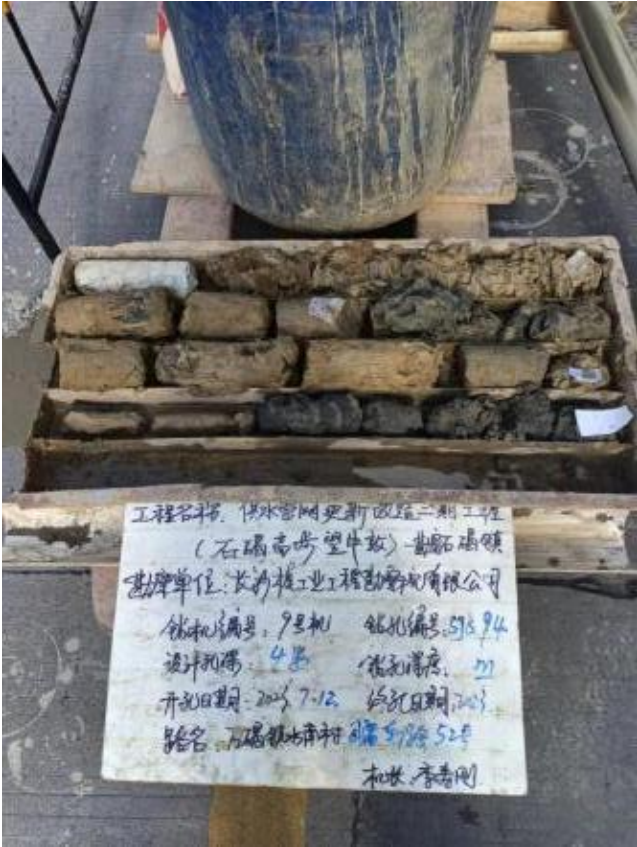 工程名称：供水管网更新改造二期工程
(石碣高埗望牛墩)-勘石碣镇
勘察单位：长沙核工业工程勘察院有限公司
钻机编号：9号机 钻孔编号：SJS 94
设计孔深：4 钻孔深度：
开孔日期：2023 7.12 终孔日期：2023
路名：石碣镇水南村 52号
机长：李